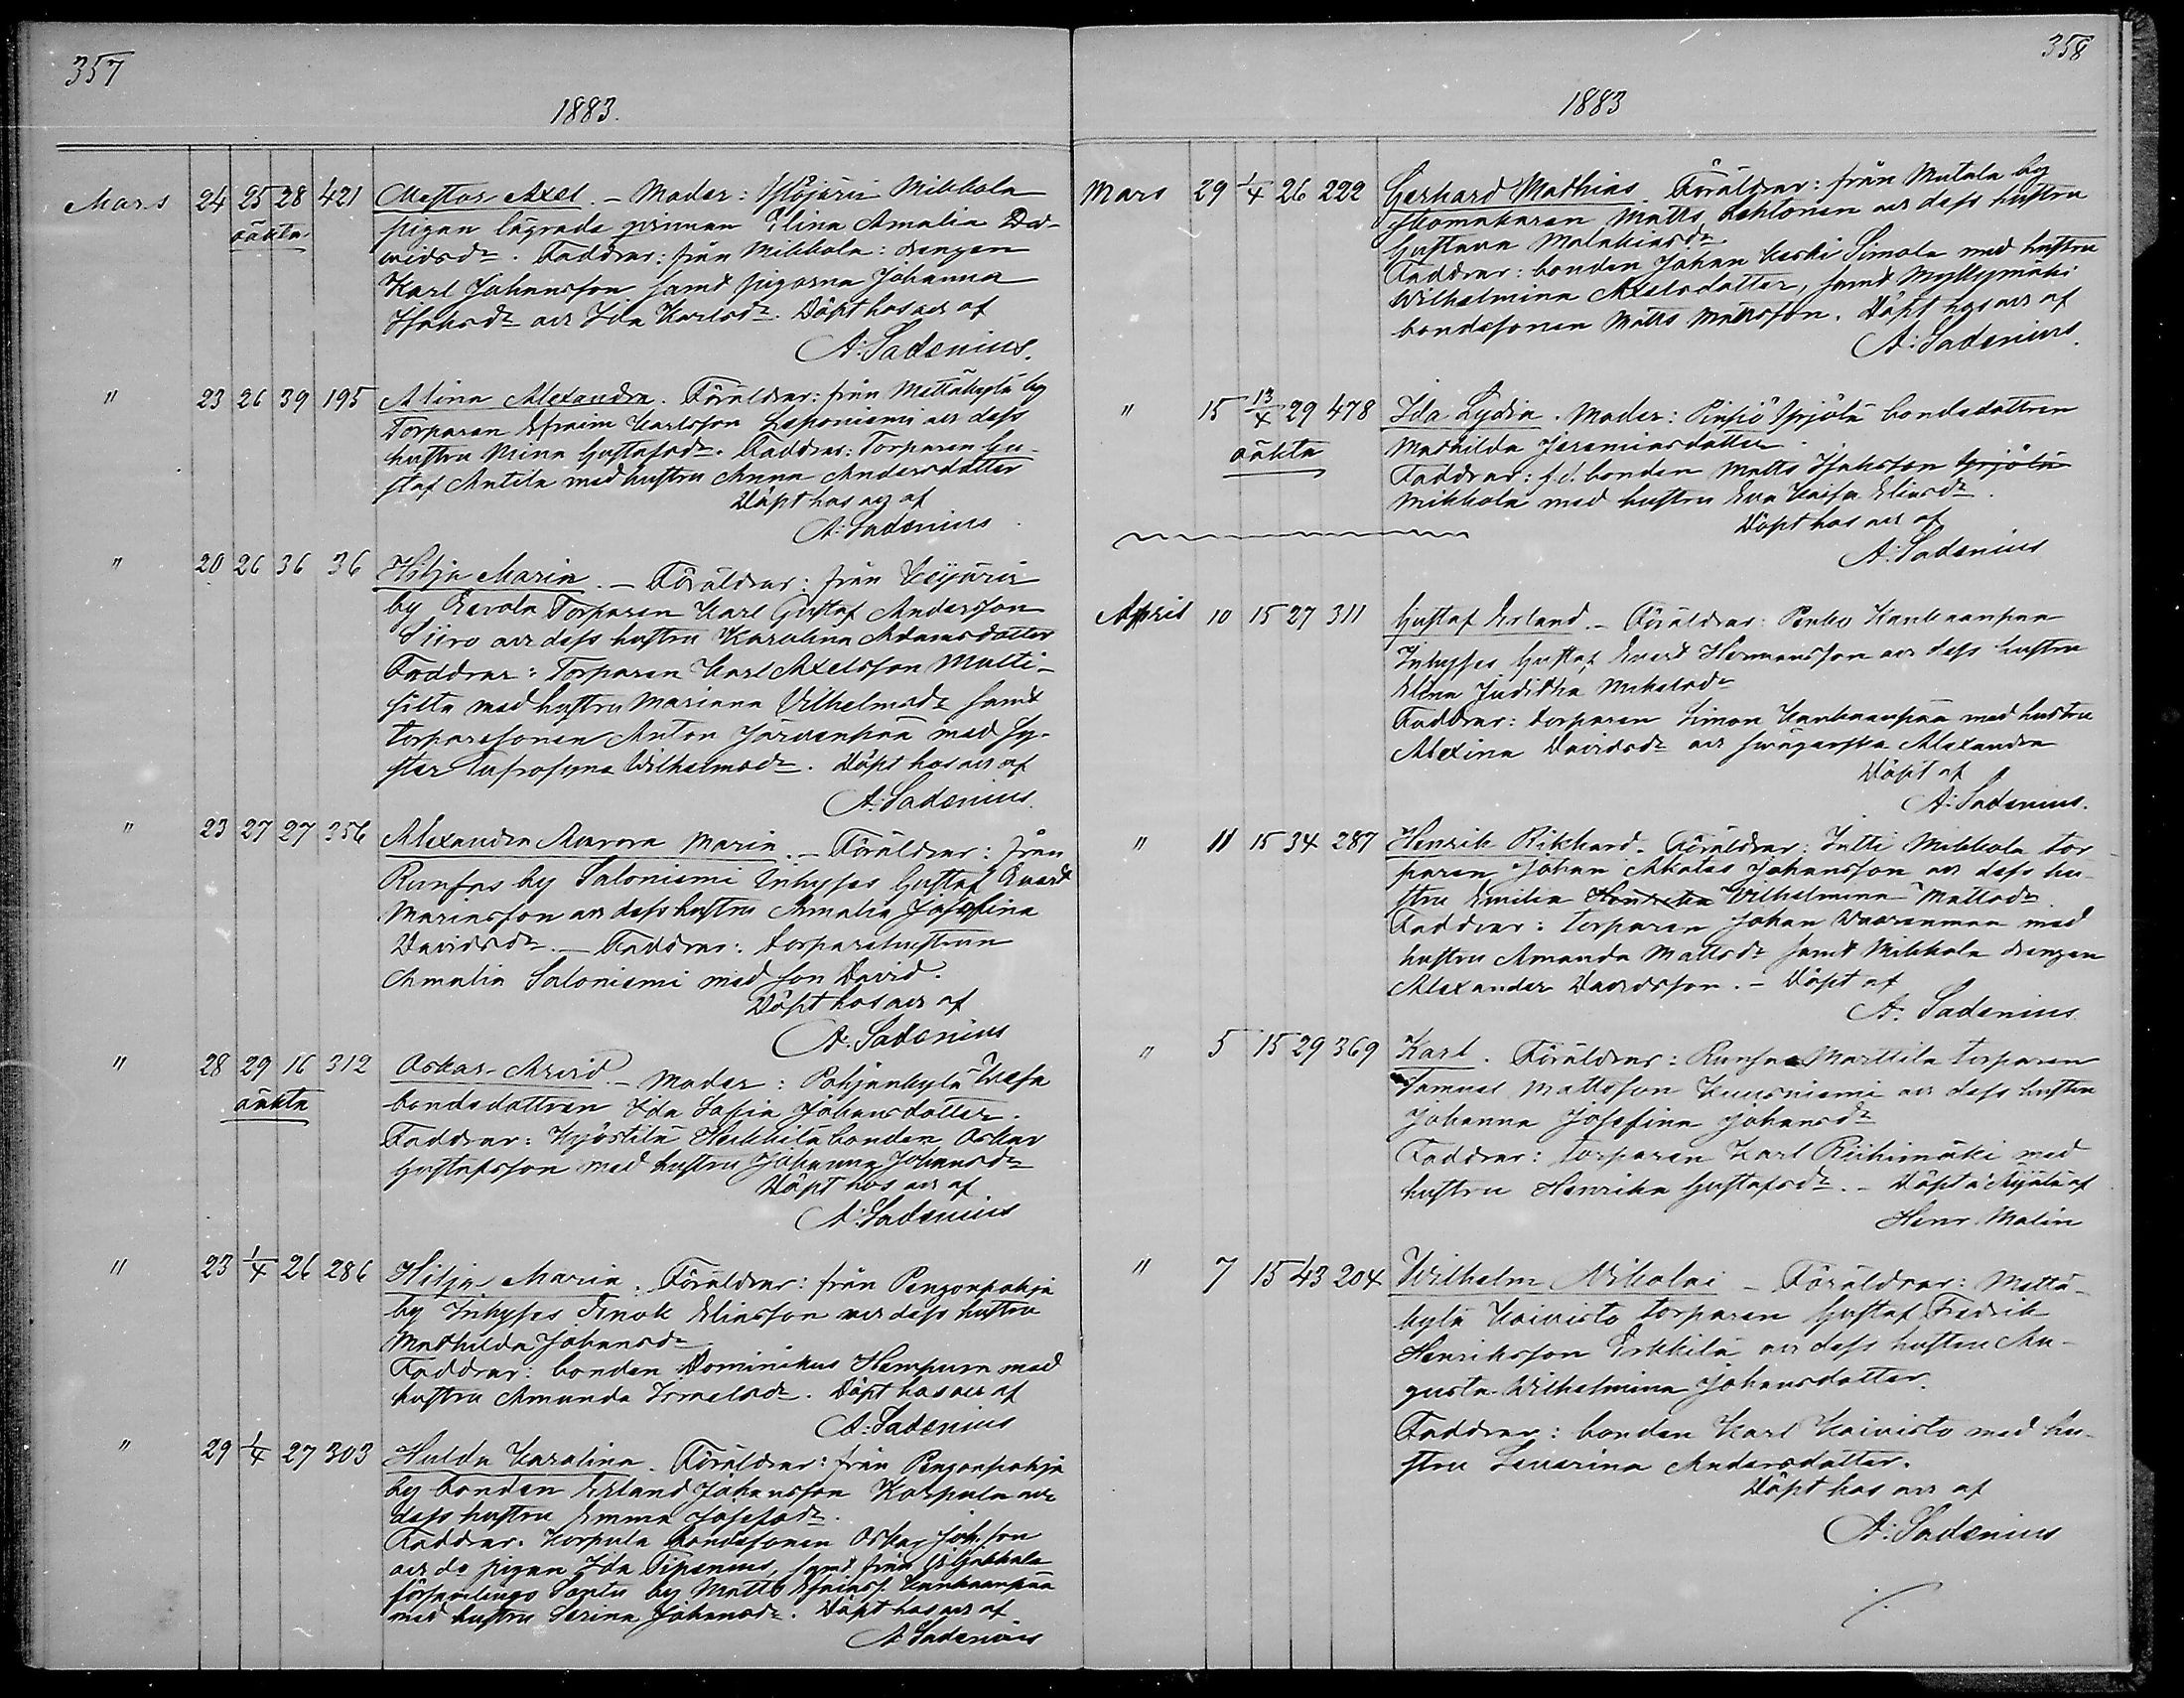 357
1883.
Mars 24 25 28 421 Nestor Axel. – Moder: Ylöjärvi Mikkola
oäkta pigan lägrade qvinnan Elina Amalia Da-
vidsdr. Faddrar: från Mikkola: drengen
Karl Johansson samt pigorna Johanna
Isaksdr och Ida Karlsdr. Döpt hos oss af
A. Sadenius.
" 23 26 39 195 Alina Alexandra. Föräldrar: från Mettäkylä by
Torparen Efraim Karlsson Leponiemi och dess
hustru Mina Gustafsdr. Faddrar: Torparen Gu-
staf Antila med hustru Anna Andersdotter
Döpt hos oss af
A. Sadenius.
" 20 26 36 36 Hilja Maria. – Föräldrar: från Keijärvi
by Eerola Torparen Karl Gustaf Andersson
Siiro och dess hustru Karolina Adamsdotter
Faddrar: Torparen Karl Axelsson Multi-
silta med hustru Mariana Vilhelmsdr samt
torparesonen Anton Järvenpää med sy-
ster Eufrosyna Wilhelmsdr. Döpt hos oss af
A. Sadenius.
" 23 27 27 356 Alexandra Aurora Maria. – Föräldrar: från
Runsas by Saloniemi Inhyses Gustaf Evert
Mariasson och dess hustru Amalia Josefina
Davidsdr. – Faddrar: torparehustrun
Amalia Saloniemi med son David.
Döpt hos oss af
A. Sadenius
" 28 29 16 312 Oskar Arvid. – Moder: Pohjankylä Uusa
oäkta bondedottren Ida Sofia Johansdotter.
Faddrar: Kyöstilä Heikkilä bonden Oskar
Gustafsson med hustru Johanna Johansdr
Döpt hos oss af
A. Sadenius
" 23 1/4 26 286 Hilja Maria. Föräldrar: från Pengonpohja
by Inhyses Enok Eliasson och dess hustru
Mathilda Johansdr
Faddrar: bonden Dominikus Hempura med
hustru Amanda Ismelsdr. Döpt hos oss af
A. Sadenius
" 29 1/4 27 303 Hulda Karolina. Föräldrar: från Pengonpohja
by bonden Erland Johansson Korpula och
dess hustru Emma Josefsdr.
Faddrar. Korpula bondesonen Oskar Joh.son
och do pigan Ida Tipenius, samt från
församlings Sontu by Matts Efraimss. Kankaanpää
med hustru Serina Johansdr. Döpt hos oss af
A. Sadenius
358
1883
Mars 29 1/4 26 222 Gerhard Mathias. Föräldrar: från Mutala by
skomakaren Matts Lehtonen och dess hustru
Gustava Malakiasdr
Faddrar: bonden Johan Keski Simola med hustru
Wilhelmina Axelsdotter, samt Myllymäki
bondesonen Matts Mattsson. Döpt hos oss af
A. Sadenius.
" 15 13/4 29 478 Ida Lydia. Moder: Pinsiö Yrjölä bondedottren
oäkta Mathilda Jeremiasdotter.
Faddrar: f.d. bonden Matts Isaksson Yrjölä
Mikkola med hustru Eva Kaisa Eliasdr.
Döpt hos oss af
A. Sadenius
April 10 15 27 311 Gustaf Erland. – Föräldrar: Penho Kankaanpää
Inhyses Gustaf Evert Hermansson och dess hustru
Elina Juditha Mikelsdr
Faddrar: torparen Simon Kankaanpää med hustru
Alexina Davidsdr och svägerska Alexandra
Döpt af
A. Sadenius.
" 11 15 34 287 Henrik Rikhard. Föräldrar: Jutti Mikkola tor-
paren Johan Akates Johansson och dess hu-
stru Emilia Henrika Wilhelmina Mattsdr.
Faddrar: torparen Johan Vaarenmaa med
hustru Amanda Mattsdr samt Mikkola drengen
Alexander Davidsson. – Döpt af
A. Sadenius.
" 5 15 29 369 Karl. Föräldrar: Runsas Marttila torparen
Samuel Mattsson Kuusniemi och dess hustru
Johanna Josefina Johansdr
Faddrar: torparen Karl Riihimäki med
hustru Henrika Gustafsdr. – Döpt i af
Henr. Malin
" 7 15 43 204 Wilhelm Nikolai – Föräldrar: Mettä-
kylä Koivisto torparen Gustaf Fredrik
Henriksson Erkkilä och dess hustru Au-
gusta Wilhelmina Johansdotter.
Faddrar: bonden Karl Koivisto med hu-
stru Severina Andersdotter.
Döpt hos oss af
A. Sadenius